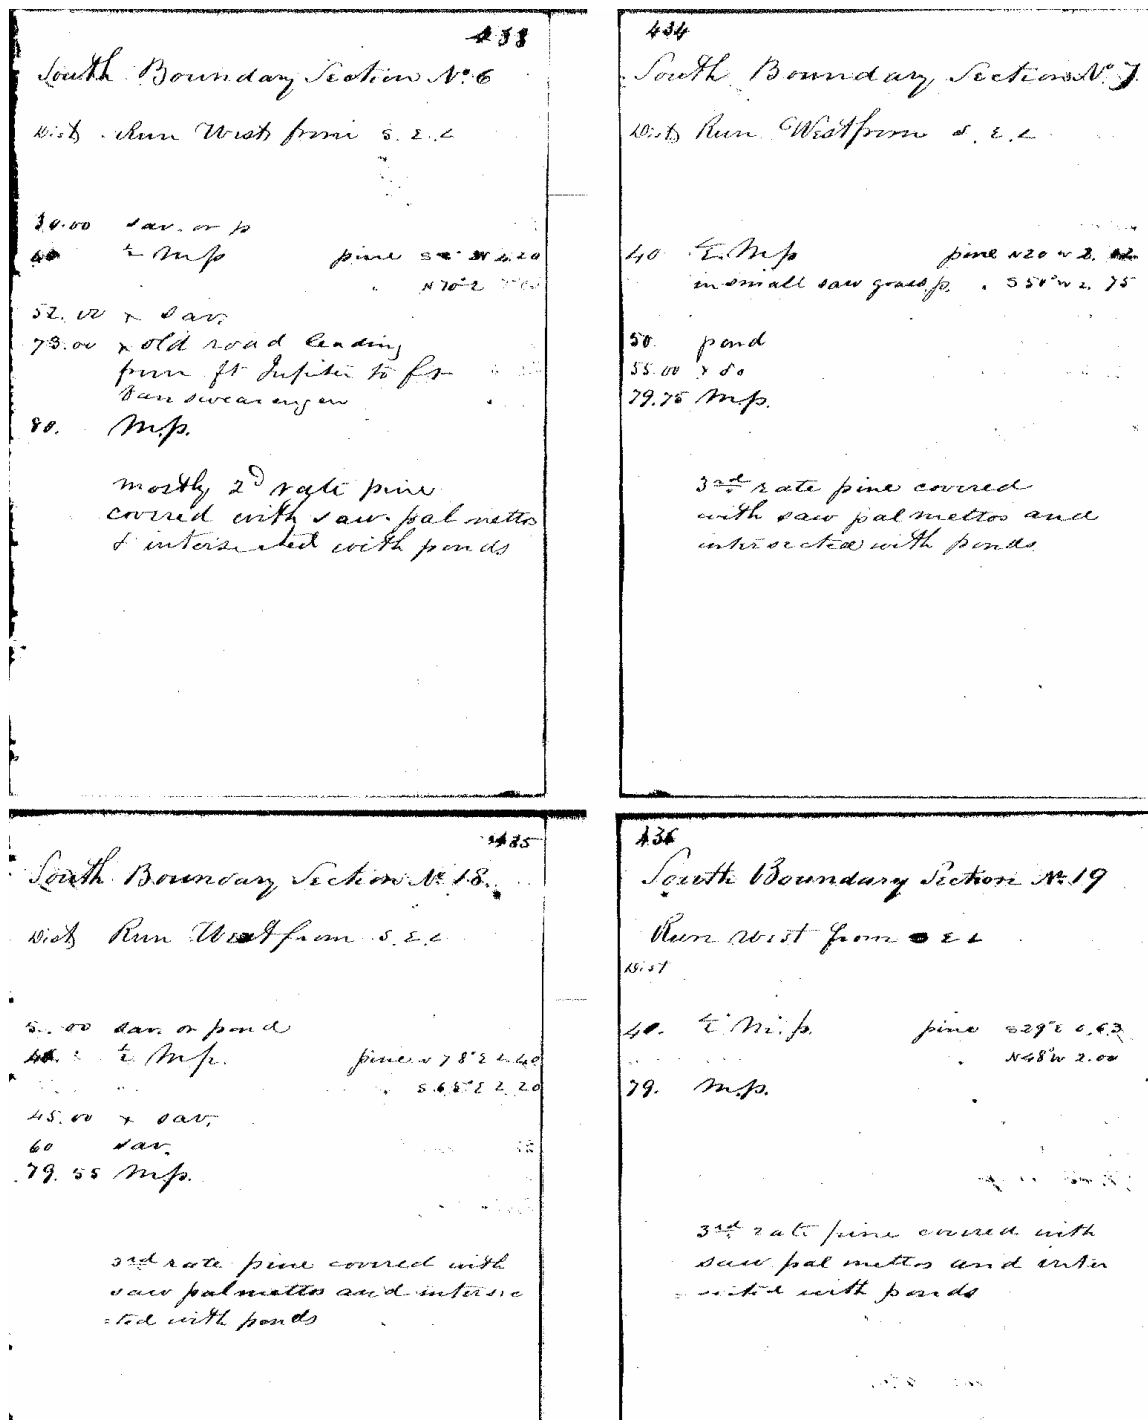 433
South Boundary Section No. 6
Dist. Run West from S. E. C
30.00 sav. or p
40 ½ M p pine S W 2.20
N 70° E
52.00 x sav.
73.00 x old road leading
from ft Jupiter to ft
Van swearengen
80. M.p.
mostly 2d rate pine
covered with saw palmettos
& intersected with ponds
434
South Boundary Section No. 7
Dist Run West from S. E. C
40 ½ M p pine N 20 W 2.
in small saw grass p. " S 50° W 2. 75
50. pond
55.00 x do
79.75 M.p.
3rd rate pine covered
with saw palmettos and
intersected with ponds
435
South Boundary Section No. 18.
Dist Run West from S. E. C
5.00 sav. or pond
40. ½ M p. pine N 78° E 2.40
" S. 65° E 2.20
45.00 x sav.
60 sav.
79.55 M.p.
3rd rate pine covered with
saw palmettos and interse
cted with ponds
436
South Boundary Section No. 19
Run West from S E C
Dist
40. ½ M. p. pine S 29° E 0.63
" N 48° W 2.00
79. M.p.
3rd rate pine covered with
saw palmettos and inter
sected with ponds